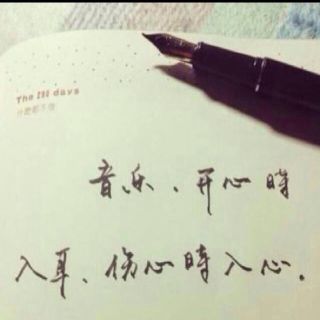 The 100 days
音乐、开心時
入耳、伤心時入心。